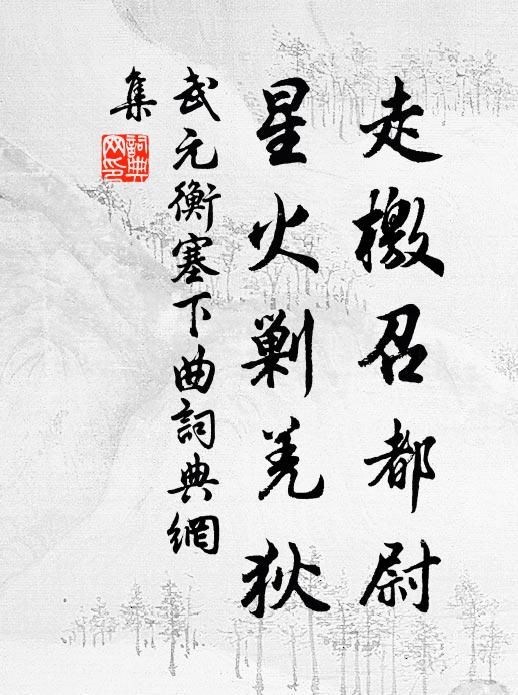 走檄召都尉
星火剿羌狄
武元衡塞下曲詞典網
集
詞典
网印